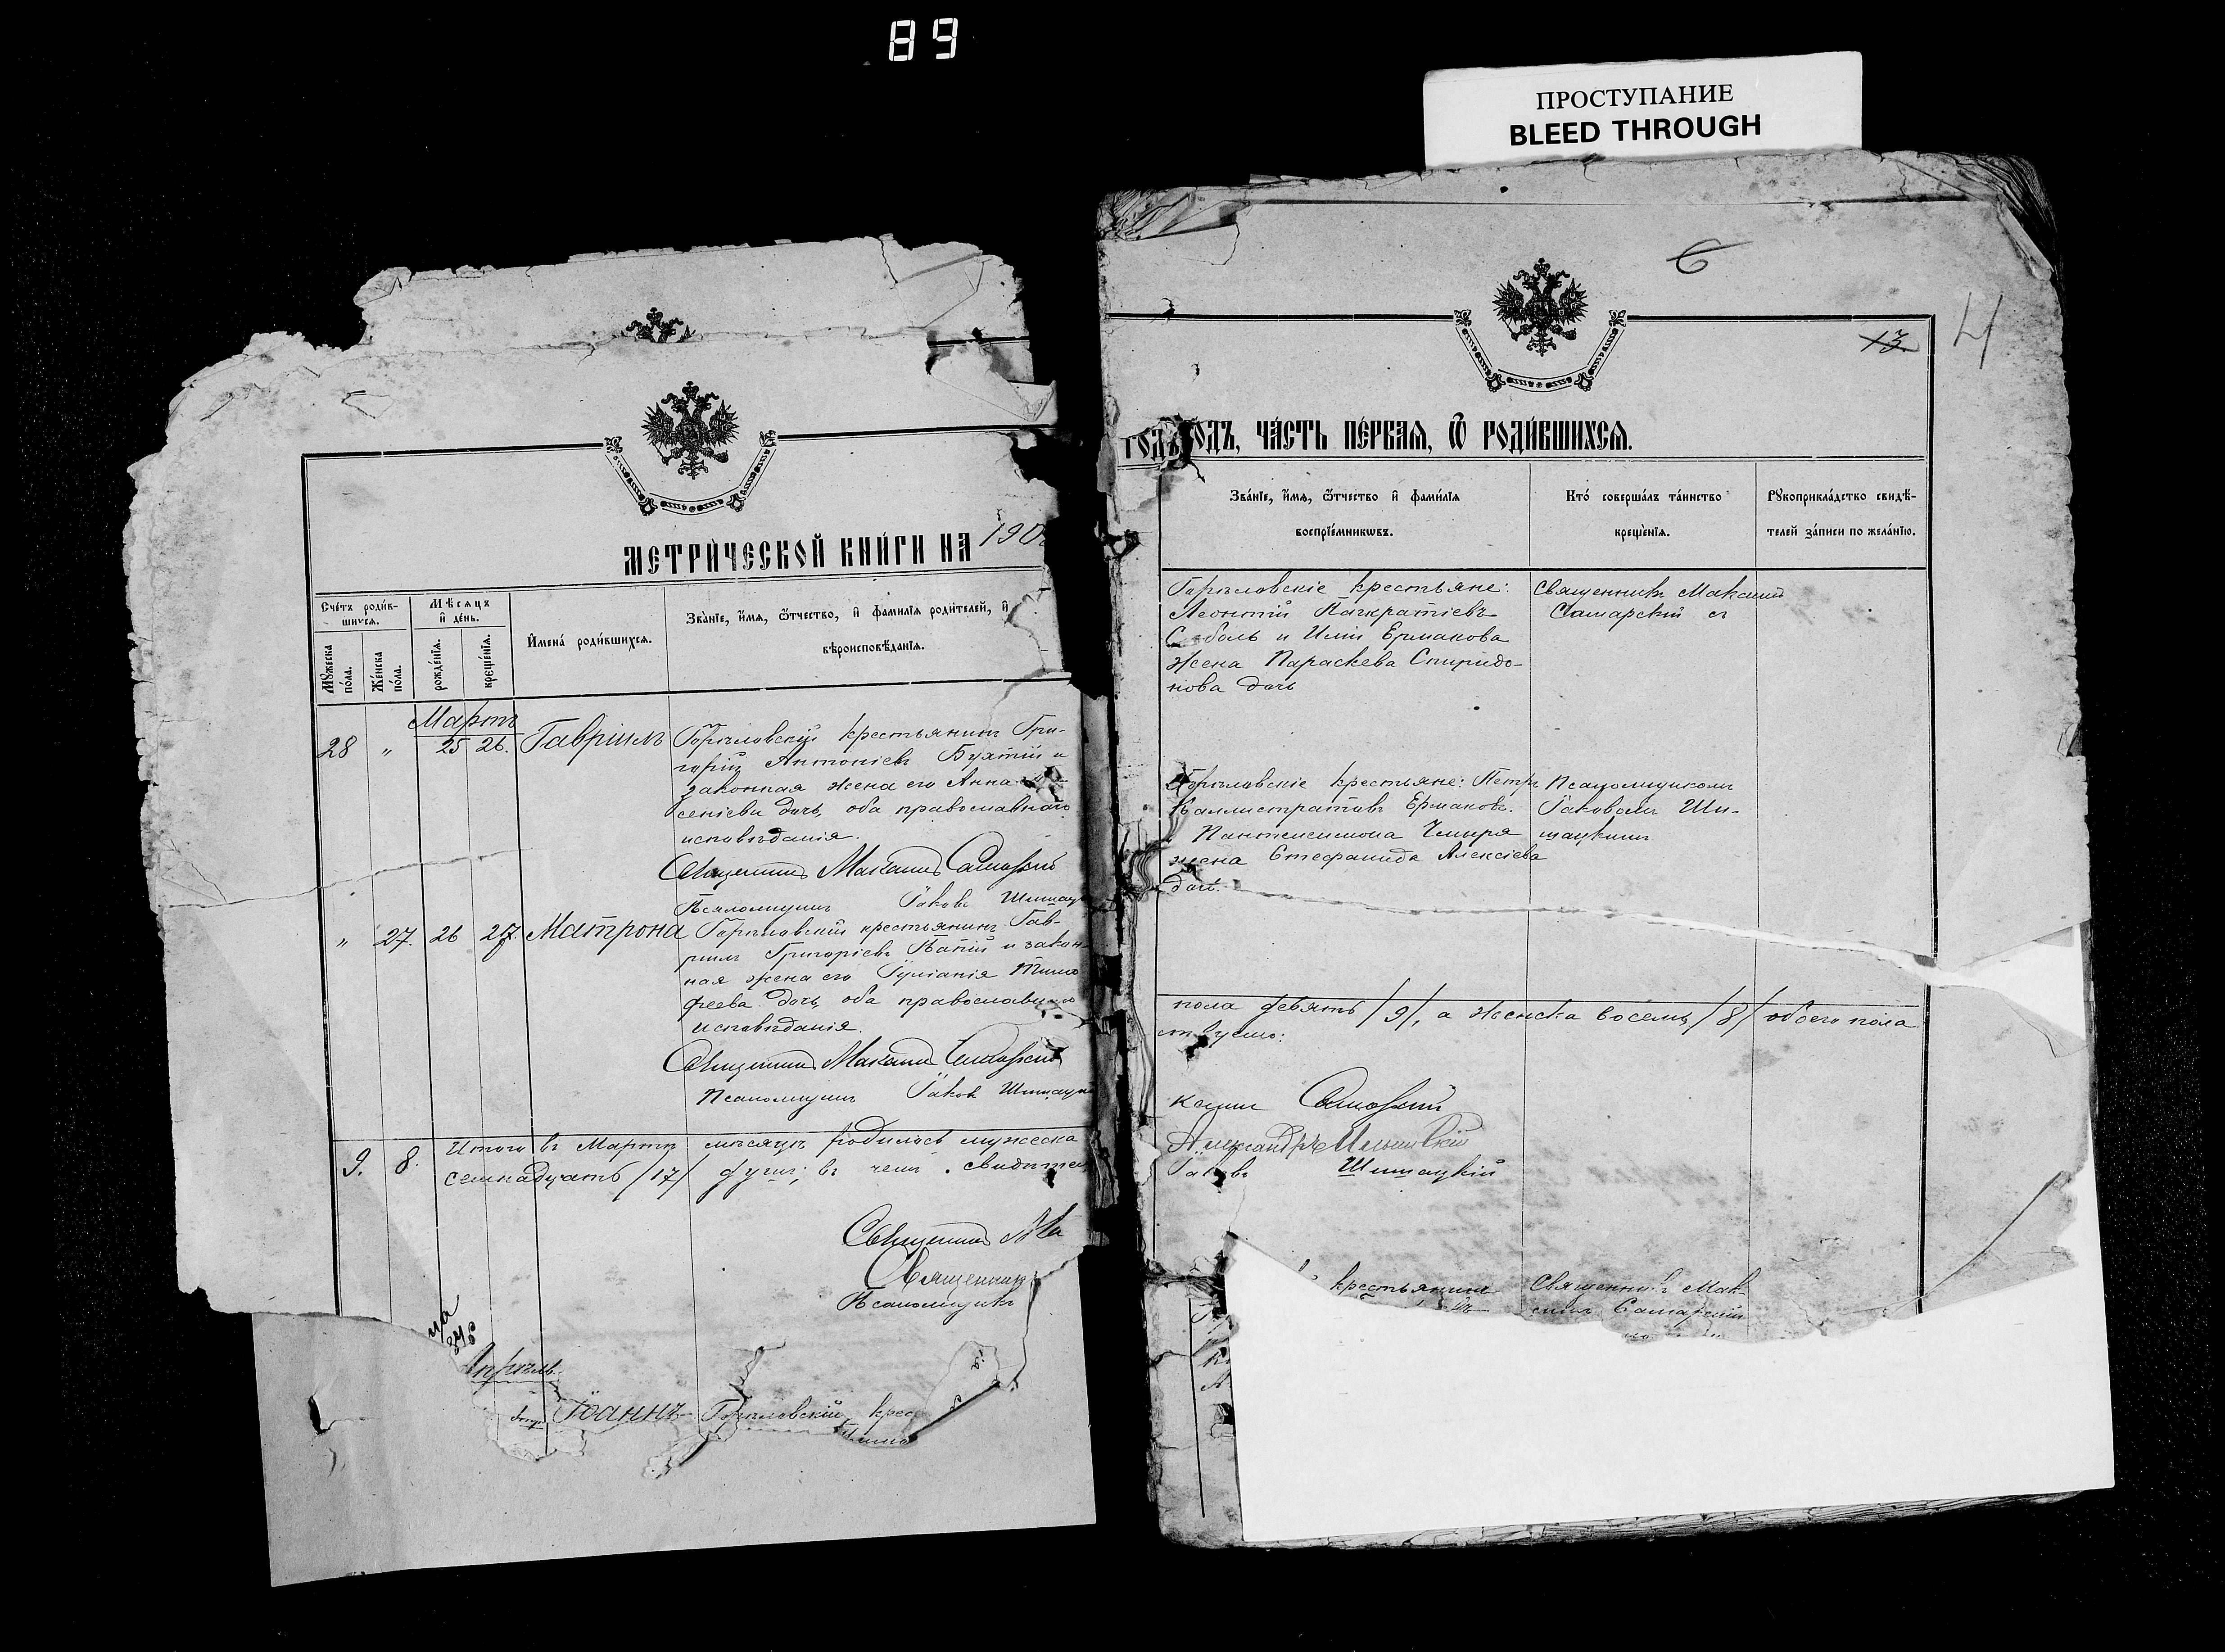 89
ПРОСТУПАНИЕ
BLEED THROUGH
6
13
4
МЕТРИ́ЧЕСКОЙ КНИ́ГИ НА 190
Сче́тъ роди́в-
шихсѧ.
Мѣ́сѧцъ
и҆ де́нь.
Мꙋ́жеска
по́ла.
Же́нска
по́ла.
рожде́нїѧ.
креще́нїѧ.
И҆мена̀ роди́вшихсѧ.
Зва́нїе, и҆́мѧ, ѻ҆́тчество, и҆ фами́лїѧ роди́телей, и҆
вѣроисповѣ́данїѧ.
Мартъ
28 " 25 26. Гавріилъ Горѣловскій крестьянинъ Гри-
горій Антоніевъ Бухтій и
законная жена его Анна
сеніева дочь, оба православнаго
исповѣданія.
Священникъ Максимъ Самарскій
Псаломщикъ Іаковъ Шишацк
" 27. 26 27. Матрона Горѣловскій крестьянинъ Гав-
ріилъ Григоріевъ и закон-
ная жена его Іуліанія Тимо
феева дочь, оба православнаго
исповѣданія.
Священникъ Максимъ Самарскій
Псаломщикъ Іаковъ Шишацк
9. 8. Итого въ Мартѣ мѣсяцѣ родилось мужеска
семнадцать /17/ душъ; въ чемъ свидѣтел
Священникъ Ма
Священникъ
Псаломщикъ
Апрѣль
Іоаннъ Горѣловскій крес
ГОДЪ
ОДЪ, ЧА́СТЬ ПЕ́РВАѦ, Ѡ҆ РОДИ́ВШИХСѦ.
Зва́нїе, и҆́мѧ, ѻ҆́тчество и҆ фами́лїѧ
воспрїе́мникѡвъ.
Кто̀ соверша́лъ та́инство
креще́нїѧ.
Рꙋкоприкла́дство свидѣ́-
телей за́писи по жела́нїю.
Горѣловскіе крестьяне:
Леонтій Панкратіевъ
Соболь и Ермакова
жена Параскева Спиридо-
нова дочь
Священникъ Максимъ
Самарскій съ
Горѣловскіе крестьяне: Петръ
Каллистратовъ Ермаковъ.
Чмиря
жена Стефанида Алексіева
дочь.
Псаломщикомъ
Іаковомъ Ши-
шацкимъ
пола девять /9/, а женска восемь /8/ обоего пола
ствуемъ:
ксимъ Самарскій
Александръ
Іаковъ Шишацкій
крестьянинъ
Священникъ Мак-
симъ Самарскій